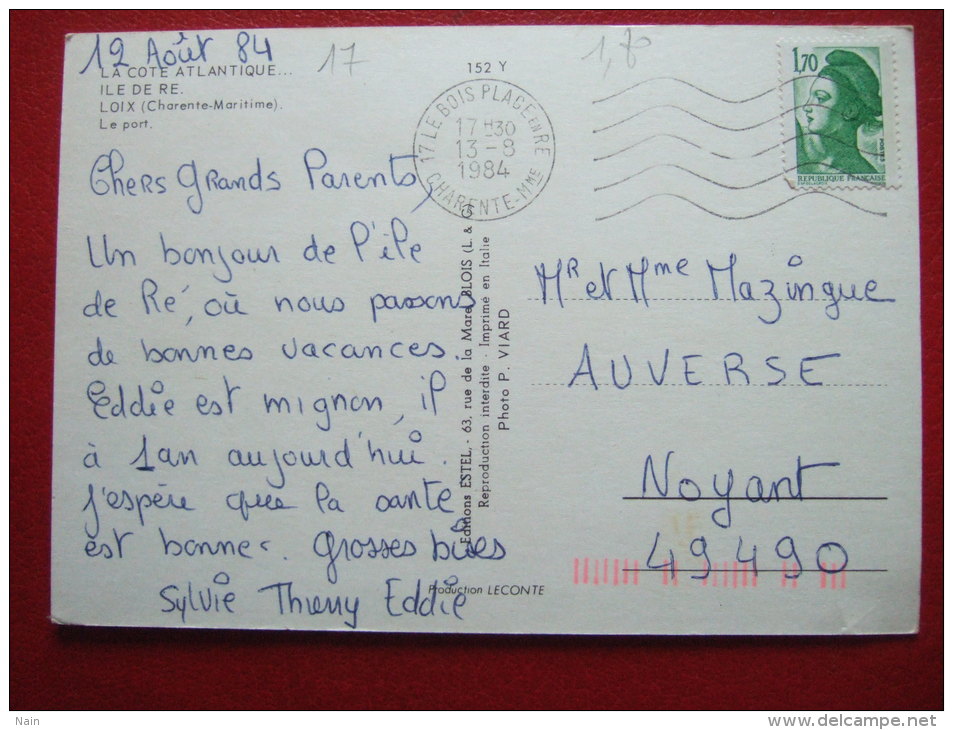 12 Août 84
17
1,70
LA COTE ATLANTIQUE...
ILE DE RE.
LOIX (Charente-Maritime).
Le port.
152 Y
17 LE BOIS PLAGE EN RE
17H30
13-8
1984
CHARENTE-MME
1,70
POSTES
REPUBLIQUE FRANÇAISE
Chers Grands Parents,
Un bonjour de l'île
de Ré, où nous passons
de bonnes vacances.
Eddie est mignon, il
à 1an aujourd'hui.
J'espère que la santé
est bonne. Grosses bises
Sylvie Thierry Eddie
Editions ESTEL, - 63, rue de la Mare, BLOIS (L. &
Reproduction interdite - Imprimé en Italie
Photo P. VIARD
Production LECONTE
Mr et Mme Mazingue
AUVERSE
Noyant
49490
Nain
www.delcampe.net